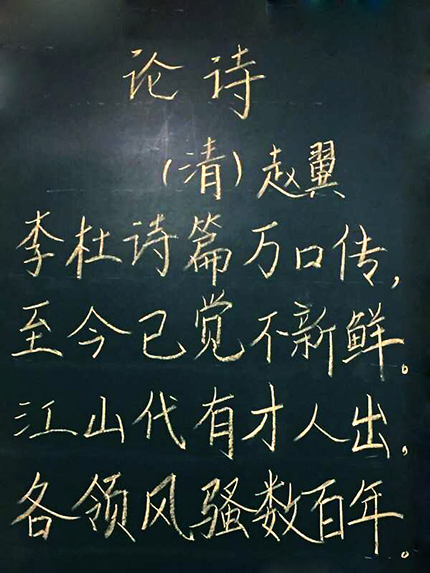 论诗
(清)赵翼
李杜诗篇万口传,
至今已觉不新鲜。
江山代有才人出,
各领风骚数百年。